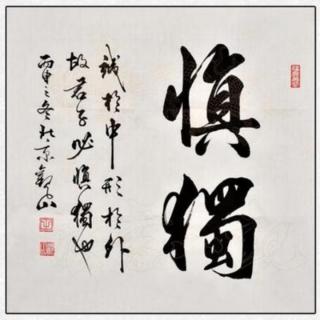 慎獨
誠於中形於外
故君子必慎獨也
丙申之冬於京觀山